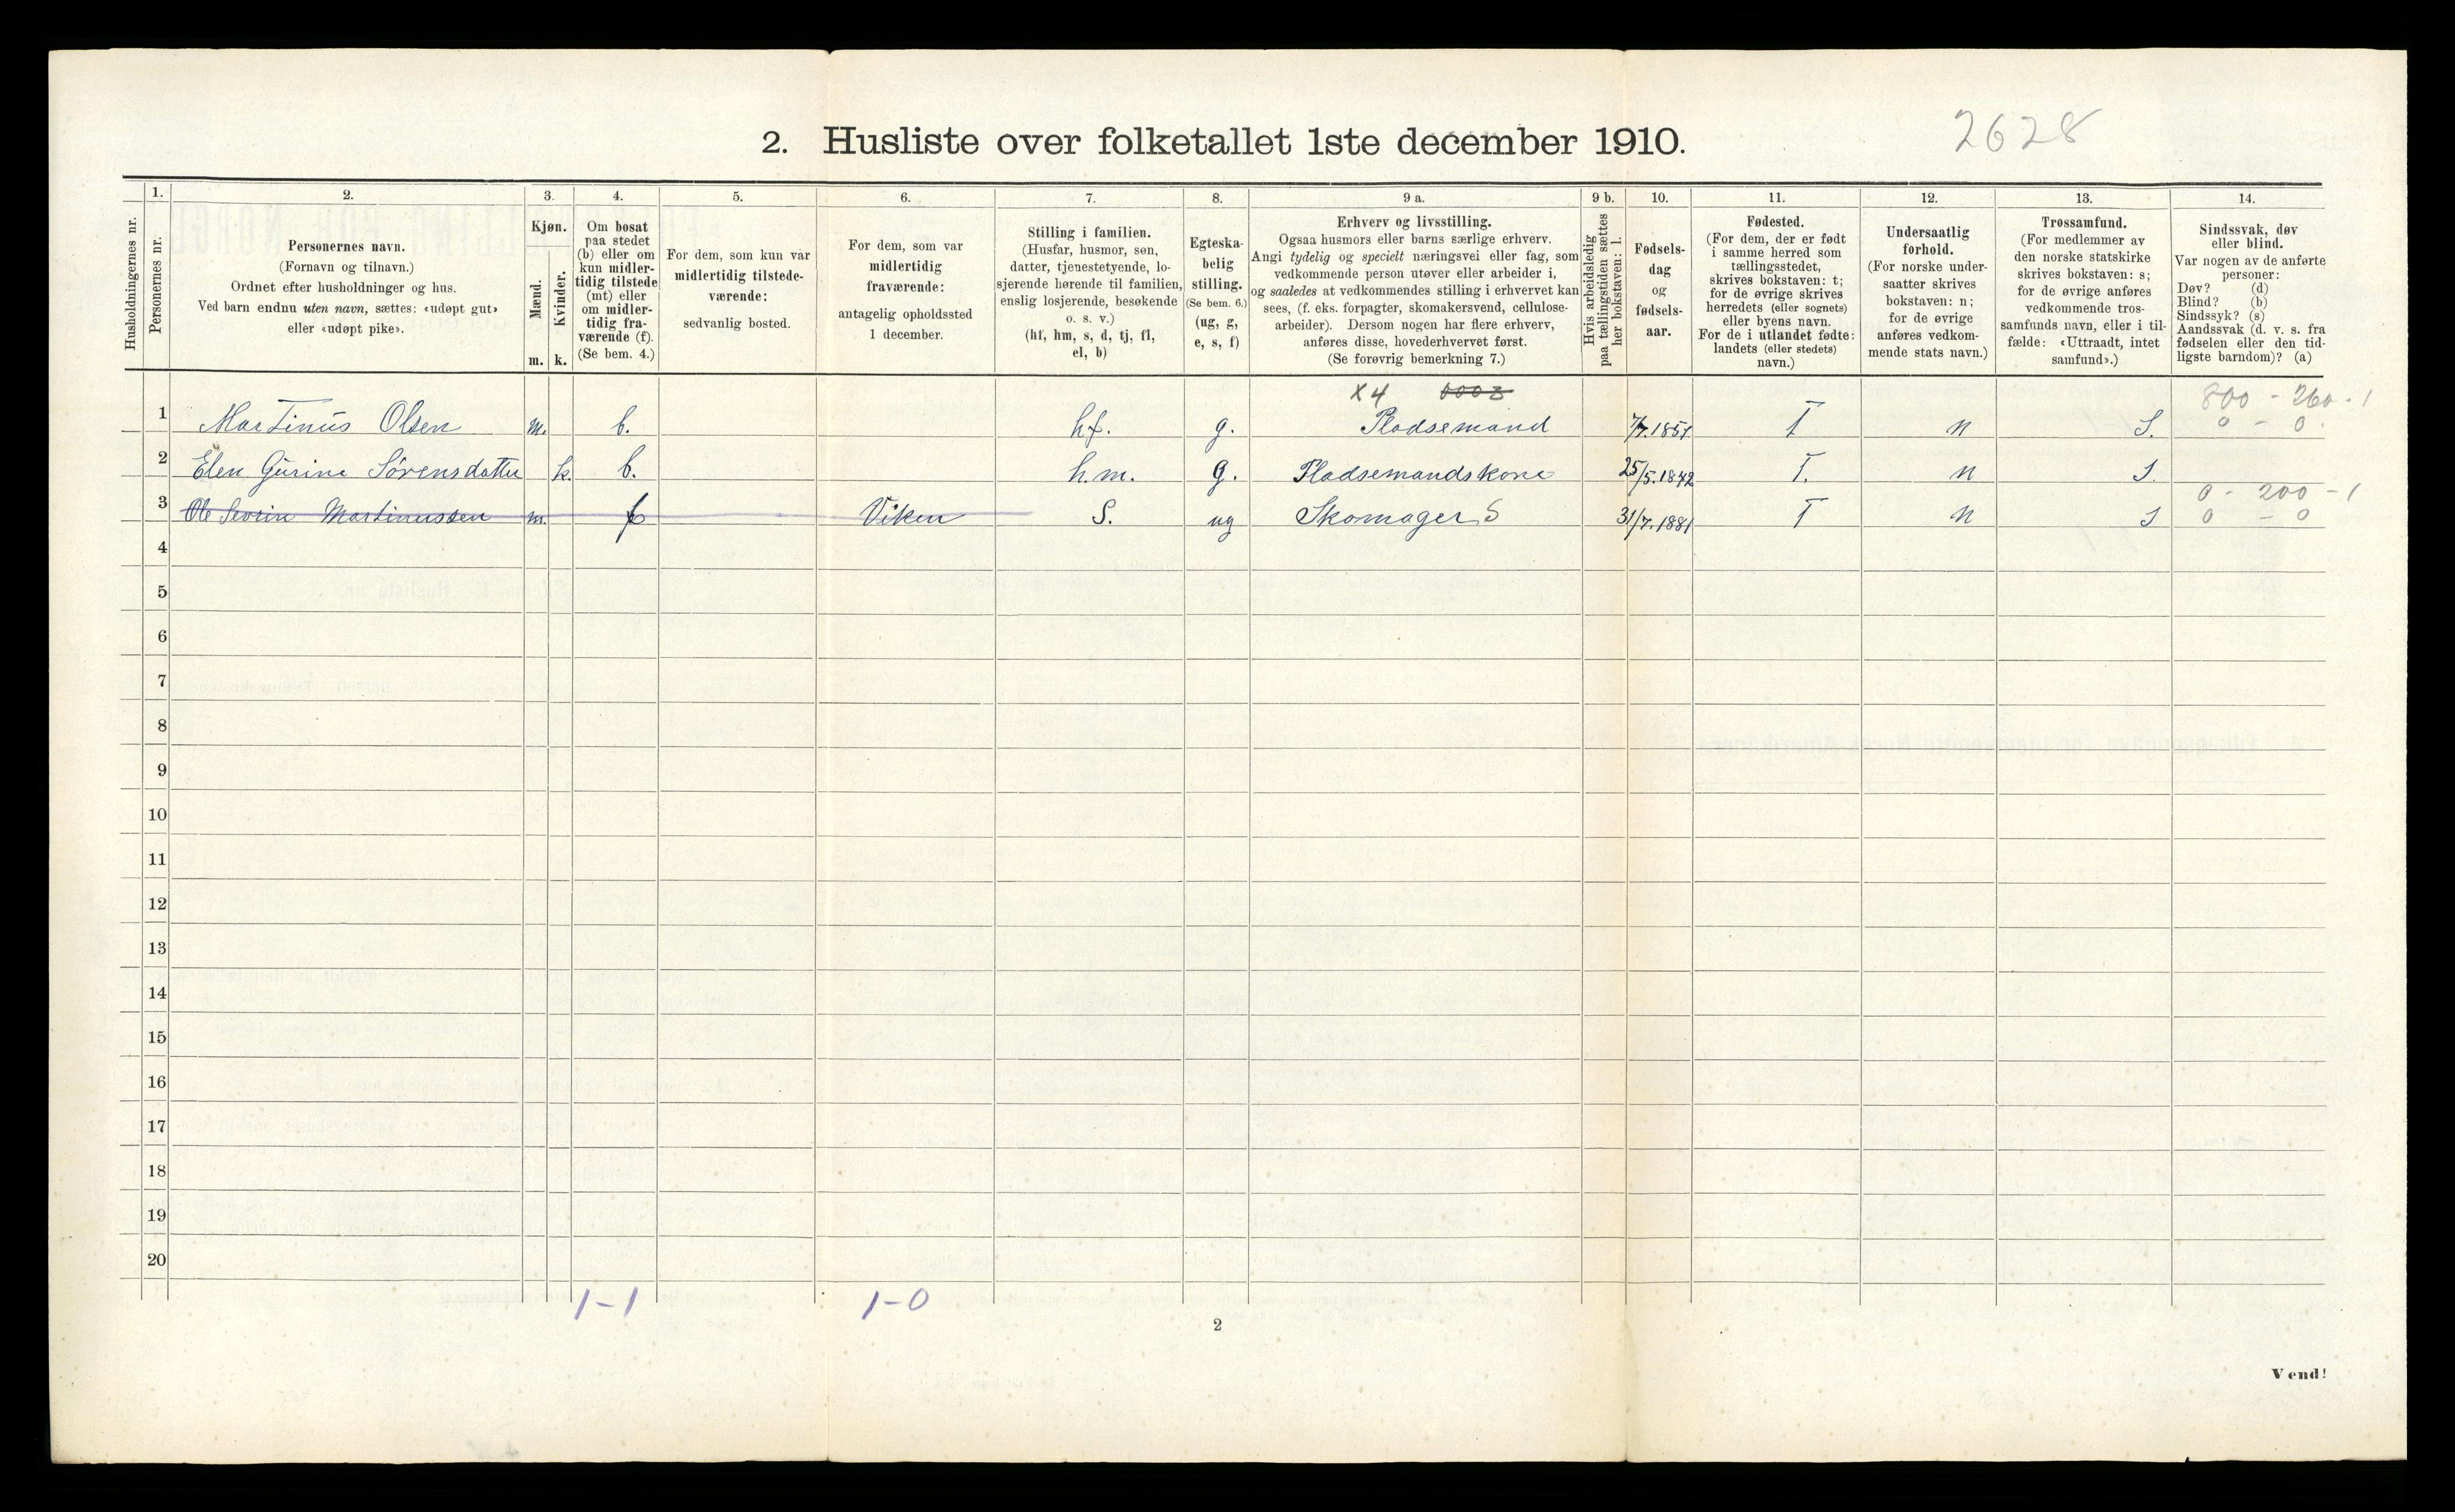 2628
2. Husliste over folketallet 1ste december 1910.
1. 2. 3. 4. 5. 6. 7. 8. 9 a. 9 b. 10. 11. 12. 13. 14.
Husholdningernes nr.
Personernes nr.
Personernes navn.
(Fornavn og tilnavn.)
Ordnet efter husholdninger og hus.
Ved barn endnu uten navn, sættes: «udøpt gut»
eller «udøpt pike».
Kjøn.
Mænd.
m.
Kvinder.
k.
Om bosat
paa stedet
(b) eller om
kun midler-
tidig tilstede
(mt) eller
om midler-
tidig fra-
værende (f).
(Se bem. 4.)
For dem, som kun var
midlertidig tilstede-
værende:
sedvanlig bosted.
For dem, som var
midlertidig
fraværende:
antagelig opholdssted
1 december.
Stilling i familien.
(Husfar, husmor, søn,
datter, tjenestetyende, lo-
sjerende hørende til familien,
enslig losjerende, besøkende
o. s. v.)
(hf, hm, s, d, tj, fl,
el, b)
Egteska-
belig
stilling.
(Se bem. 6.)
(ug, g,
e, s, f)
Erhverv og livsstilling.
Ogsaa husmors eller barns særlige erhverv.
Angi tydelig og specielt næringsvei eller fag, som
vedkommende person utøver eller arbeider i,
og saaledes at vedkommendes stilling i erhvervet kan
sees, (f. eks. forpagter, skomakersvend, cellulose-
arbeider). Dersom nogen har flere erhverv,
anføres disse, hovederhvervet først.
(Se forøvrig bemerkning 7.)
Hvis arbeidsledig
paa tællingstiden sættes
her bokstaven: l.
Fødsels-
dag
og
fødsels-
aar.
Fødested.
(For dem, der er født
i samme herred som
tællingsstedet,
skrives bokstaven: t;
for de øvrige skrives
herredets (eller sognets)
eller byens navn.
For de i utlandet fødte:
landets (eller stedets)
navn.)
Undersaatlig
forhold.
(For norske under-
saatter skrives
bokstaven: n;
for de øvrige
anføres vedkom-
mende stats navn.)
Trossamfund.
(For medlemmer av
den norske statskirke
skrives bokstaven: s;
for de øvrige anføres
vedkommende tros-
samfunds navn, eller i til-
fælde: «Uttraadt, intet
samfund».)
Sindssvak, døv
eller blind.
Var nogen av de anførte
personer:
Døv? (d)
Blind? (b)
Sindssyk? (s)
Aandssvak (d. v. s. fra
fødselen eller den tid-
ligste barndom)? (a)
X4 0003 800 - 260 - 1
1 Martinus Olsen m. b. hf. g. Pladsemand 7/7.1851 T n S. 0 - 0
2 Elen Gurine Sörensdatter k. b. h.m. g. Pladsemandskone 25/5.1842 T. n S.
0 - 200 - 1
3 Ole Sevrin Martinussen m. f Viken S. ug Skomager S 31/7.1881 T n S 0 - 0
4
5
6
7
8
9
10
11
12
13
14
15
16
17
18
19
20
1-1 1-0
2
Vend!